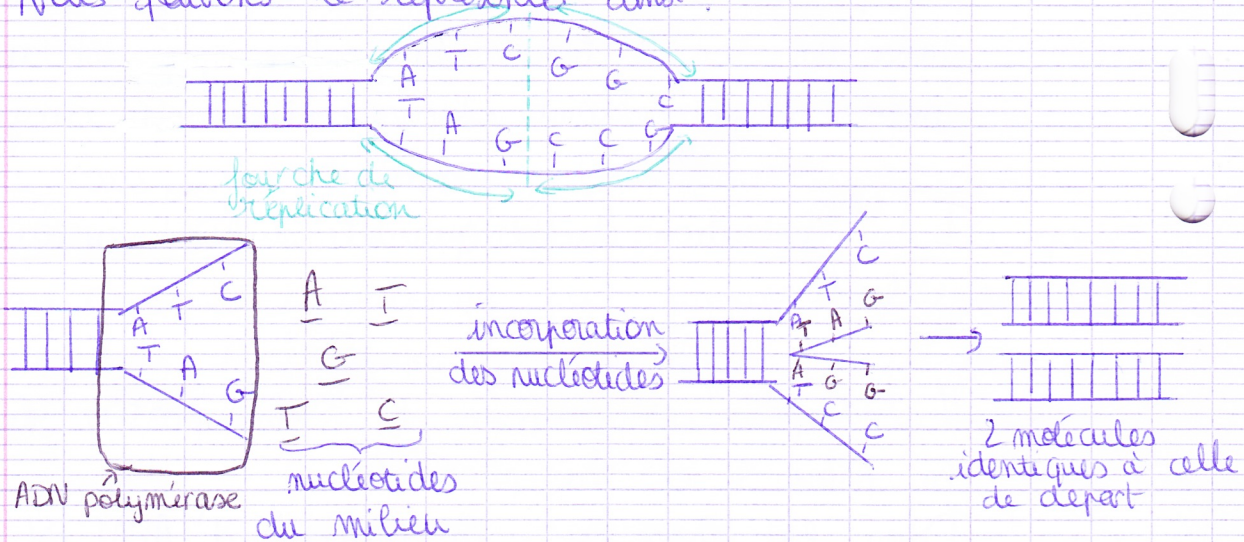 Nous pouvons le représenter ainsi :
A T C G G A
C
T A G C C G
fourche de
réplication
A T C
T A G
A T
G
T C
ADN polymérase
nucléotides
du milieu
incorporation
des nucléotides
C
T G
A T A
A G G
T C C
2 molécules
identiques à celle
de départ